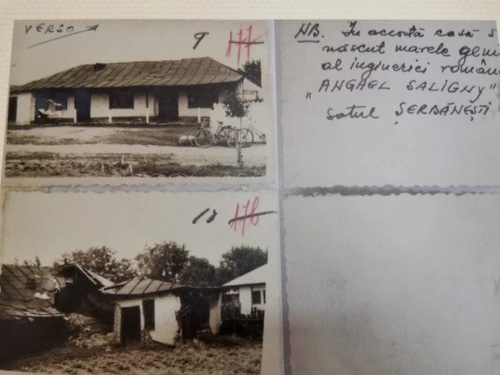 VERSO
9 177
NB. În această casă s
născut marele geniu
al ingineriei român
„ANGAEL SALIGNY”
satul ȘERBĂNEȘTI
10 176